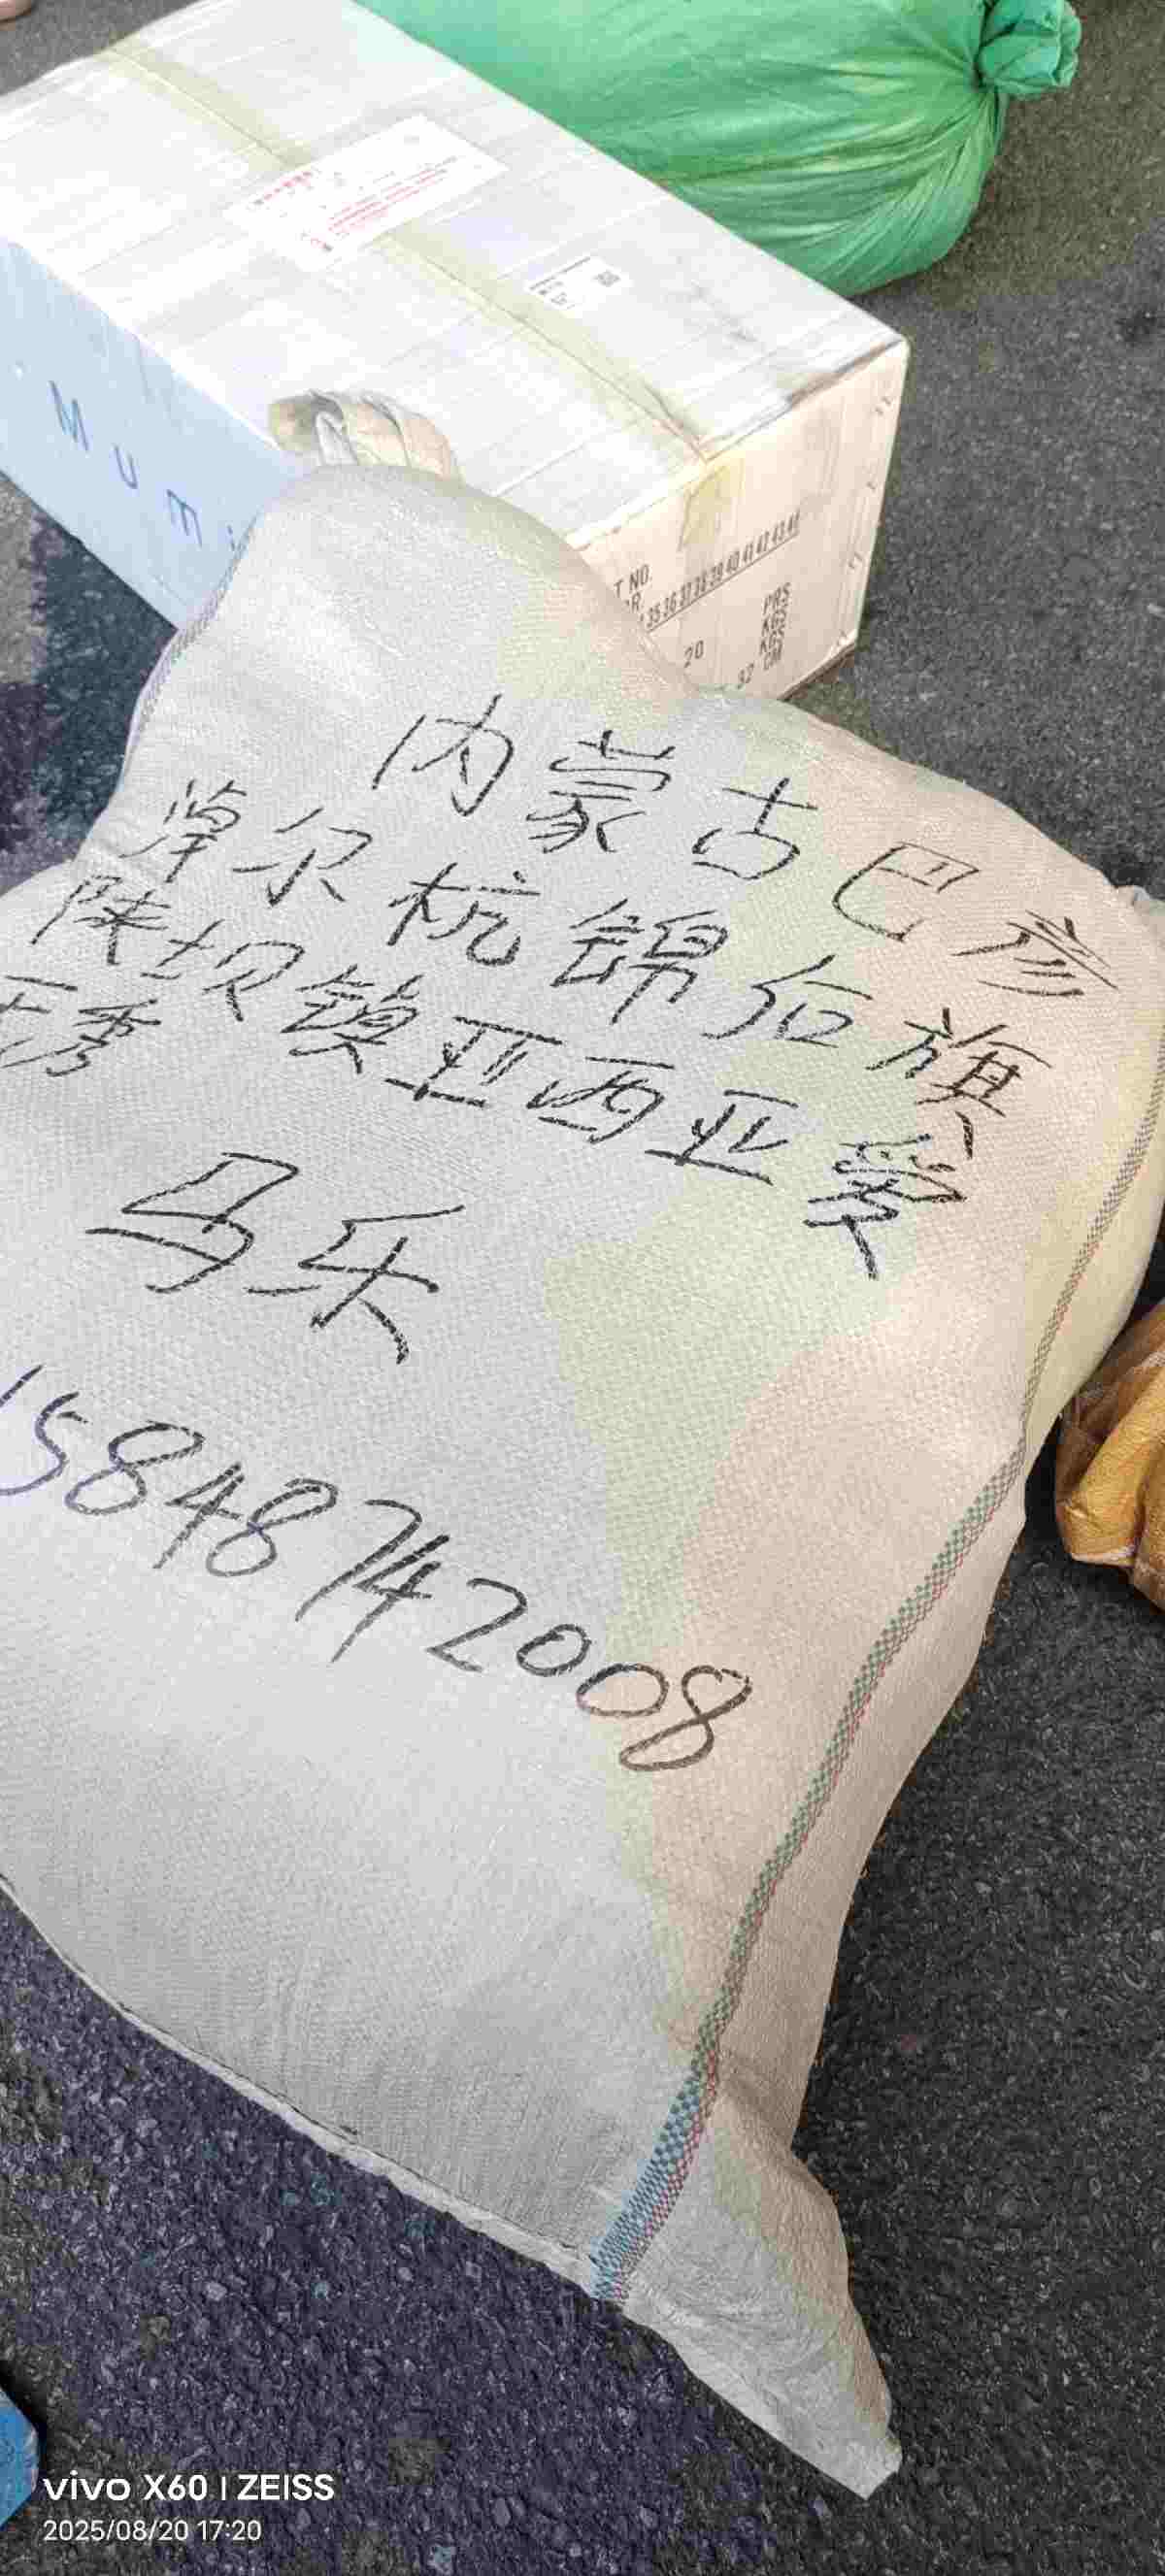 Mumi
T NO.
35 36 37 38 39 40 41 42 43 44
PRS
KGS
KGS
CM
20
32
内蒙古巴彦
淖尔杭锦后旗
陕坝镇亚西亚爱
秀
马乐
15848742008
vivo X60 | ZEISS
2025/08/20 17:20